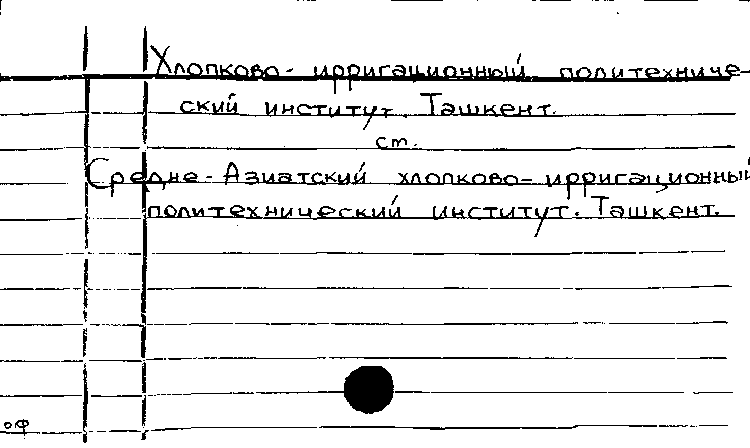 Хлопково- ирригационный политехниче-
ский институт. Ташкент.
ст.
Средне-Азиатский хлопково-ирригационный
политехнический институт. Ташкент.
оф